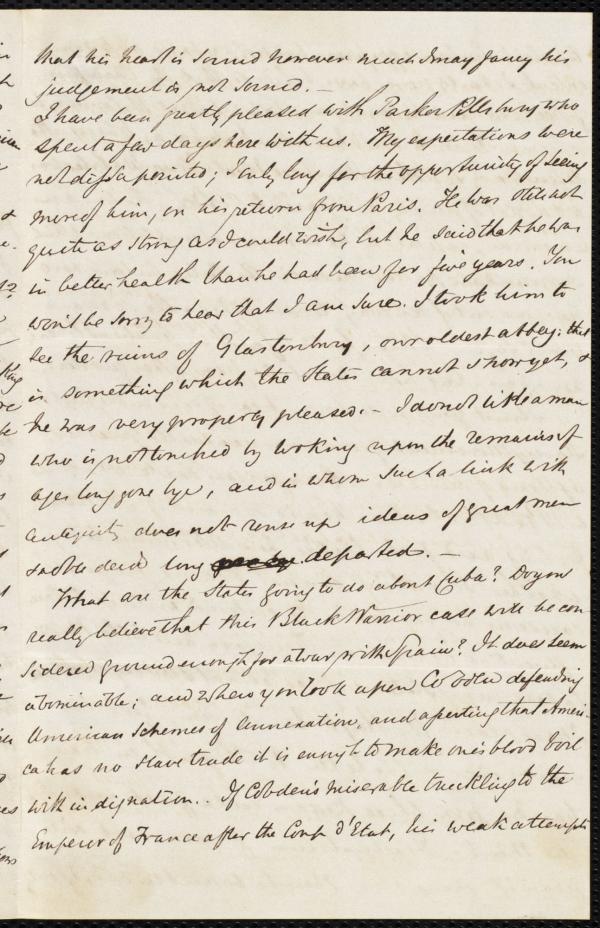 that his heart is sound however much I may fancy his
judgement is not sound. —
I have been greatly pleased with Parker Pillsbury who
spent a few days here with us. My expectations were
not dissapointed; I only long for the opportunity of seeing
more of him, on his return from Paris. He was still not
quite as strong as I could wish, but he said that he was
in better health than he had been for five years. You
won't be sorry to hear that I am sure. I took him to
see the ruins of Glastonbury, our oldest abbey; this
is something which the States cannot show yet, &
he was very properly pleased. — I do not like a man
who is not touched by looking upon the remains of
ages long gone bye, and in whom such a link with
antiquity does not rouse up ideas of great men
& noble deeds long departed. —
What are the States going to do about Cuba? Do you
really believe that this Black Warrior case will be con
sidered ground enough for a war with Spain? It does seem
abominable; and when you look upon Cobden defending
American schemes of annexation, and asserting that Ameri-
ca has no slave trade it is enough to make one's blood boil
with indignation.. If Cobden's miserable truckling to the
Emperor of France after the Coup d'Etat, his weak attempts